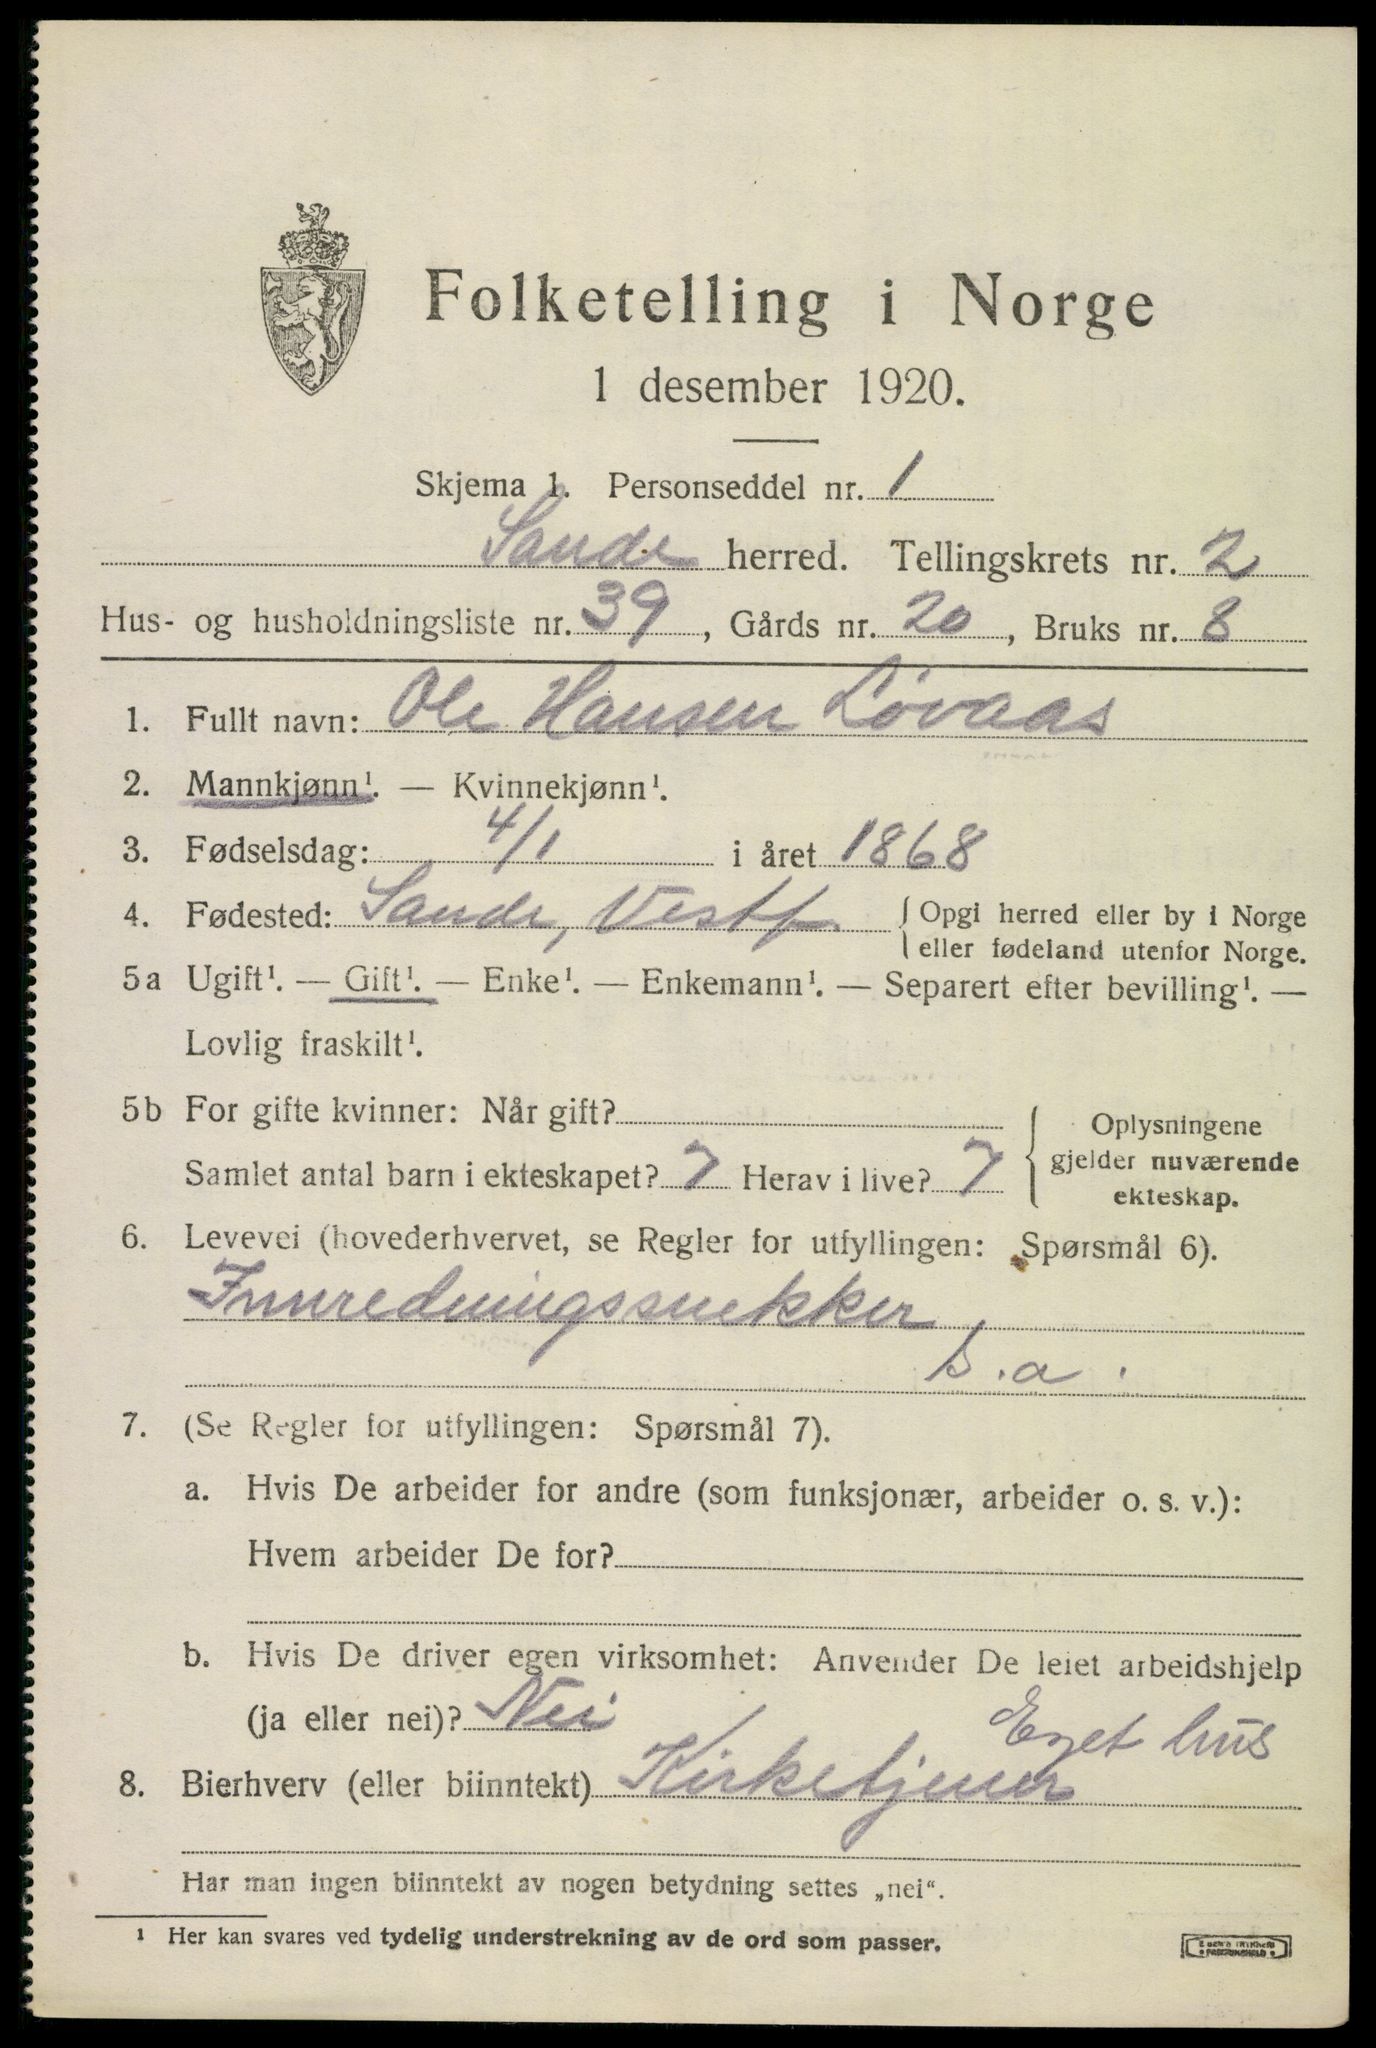 Folketelling i Norge
1 desember 1920.
Skjema 1. Personseddel nr. 1
Sande herred. Tellingskrets nr. 2
Hus- og husholdningsliste nr. 39, Gårds nr. 20, Bruks nr. 8
1. Fullt navn: Ole Hansen Løvaas
2. Mannkjønn¹. — Kvinnekjønn¹.
3. Fødselsdag: 4/1 i året 1868
4. Fødested: Sande, Vestf { Opgi herred eller by i Norge
eller fødeland utenfor Norge.
5a Ugift¹. — Gift¹. — Enke¹. — Enkemann¹. — Separert efter bevilling¹. —
Lovlig fraskilt¹.
5b For gifte kvinner: Når gift?
Samlet antal barn i ekteskapet? 7 Herav i live? 7
{ Oplysningene
gjelder nuværende
ekteskap.
6. Levevei (hovederhvervet, se Regler for utfyllingen: Spørsmål 6).
Innredningssnekker
s.a.
7. (Se Regler for utfyllingen: Spørsmål 7).
a. Hvis De arbeider for andre (som funksjonær, arbeider o. s. v.):
Hvem arbeider De for?
b. Hvis De driver egen virksomhet: Anvender De leiet arbeidshjelp
(ja eller nei)? Nei
Eget hus
8. Bierhverv (eller biinntekt) Kirketjener
Har man ingen biinntekt av nogen betydning settes „nei“.
¹ Her kan svares ved tydelig understrekning av de ord som passer.